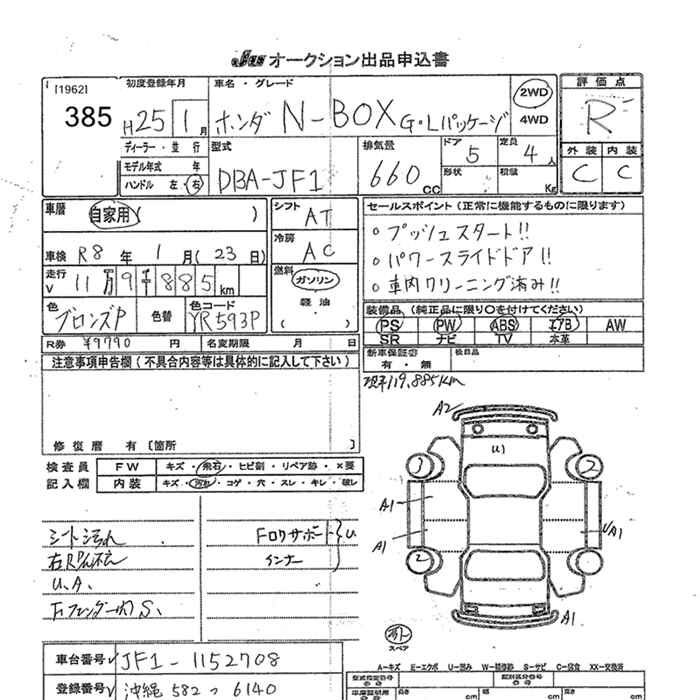 オークション出品申込書
[1962]
385
初度登録年月
H25 1月
車名・グレード
ホンダ N-BOX G・Lパッケージ
2WD
4WD
評価点
R
ディーラー・並行
モデル年式 年
ハンドル 左・右
型式
DBA-JF1
排気量
660cc
ドア
5
定員
4人
形状
積載
Kg
外装 内装
C C
車歴
自家用( )
シフト
AT
セールスポイント(正常に機能するものに限ります)
○プッシュスタート!!
○パワースライドドア!!
○車内クリーニング済み!!
車検 R8年 1月(23日)
冷房
AC
走行
11万9千885km
燃料
ガソリン
軽油
( )
色
ブロンズP
色替
色コード
YR593P
装備品(純正品に限り○を付けてください)
PS PW ABS エアB AW
SR ナビ TV 本革
R券 ¥9790円 名変期限 月 日
新車保証書
有・無
後日品
注意事項申告欄(不具合内容等は具体的に記入して下さい)
119,885km
修復歴 有〔箇所 〕
検査員
記入欄
FW キズ・飛石・ヒビ割・リペア跡・×要
内装 キズ・汚れ・コゲ・穴・スレ・キレ・破レ
A2
U1
1 2
A1
A1 A1
2
A1
スペア
シート汚れ
U.A.
Fフェンダー S.
Fロワサポート
インナー
U
A-キズ E-エクボ U-凹み W-補修跡 S-サビ C-腐食 XX-交換済
車台番号 JF1-1152708
登録番号 沖縄 582 つ 6140
型式指定番号
類別区分番号
長さ cm 幅 cm 高さ cm